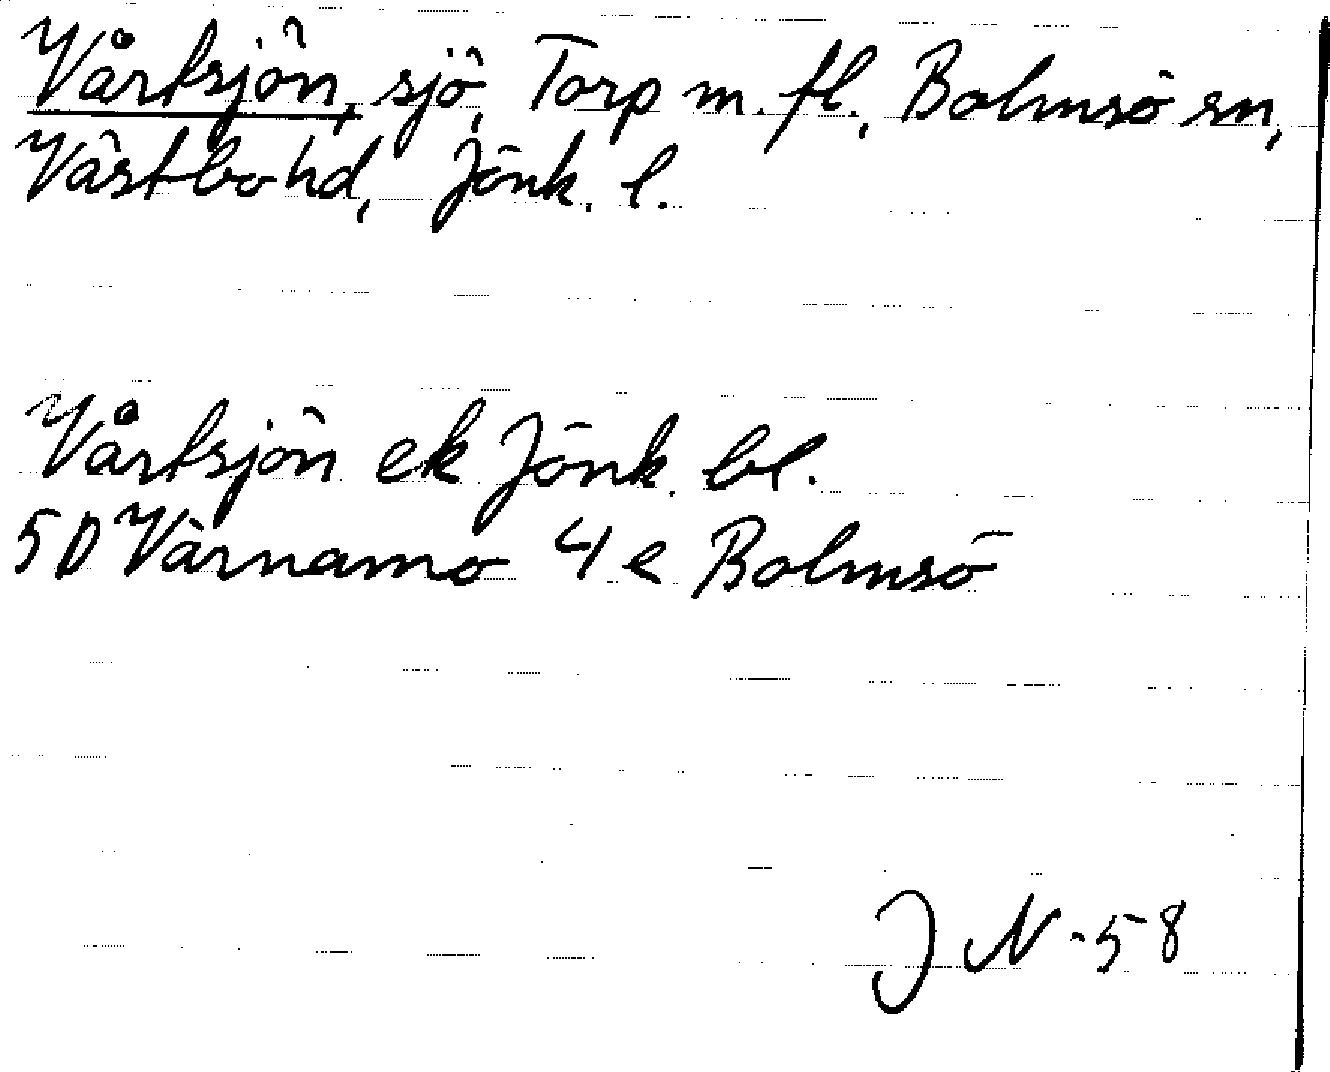 Vårtsjön, sjö, Torp m. fl., Bolmsö sn,
Västbo hd, Jönk. l.
Vårtsjön ek Jönk. bl.
5D Värnamo 4e Bolmsö
J N -58